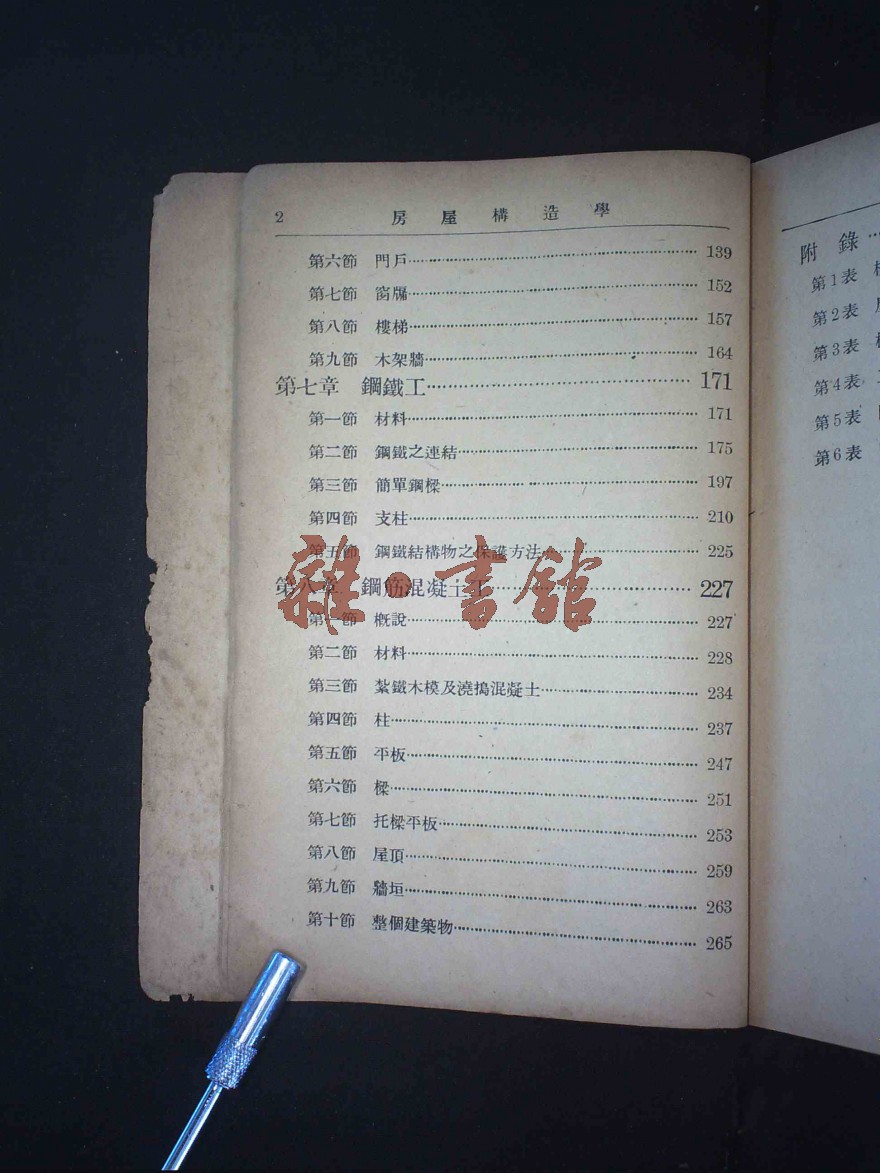 2 房屋構造學
第六節 門戶……139
第七節 窗牖……152
第八節 樓梯……157
第九節 木架牆……164
第七章 鋼鐵工……171
第一節 材料……171
第二節 鋼鐵之連結……175
第三節 簡單鋼樑……197
第四節 支柱……210
第五節 鋼鐵結構物之保護方法……225
第八章 鋼筋混凝土工……227
第一節 概說……227
第二節 材料……228
第三節 紮鐵木模及澆搗混凝土……234
第四節 柱……237
第五節 平板……247
第六節 樑……251
第七節 托樑平板……253
第八節 屋頂……259
第九節 牆垣……263
第十節 整個建築物……265
雜·書館
附錄…
第1表
第2表
第3表
第4表
第5表
第6表